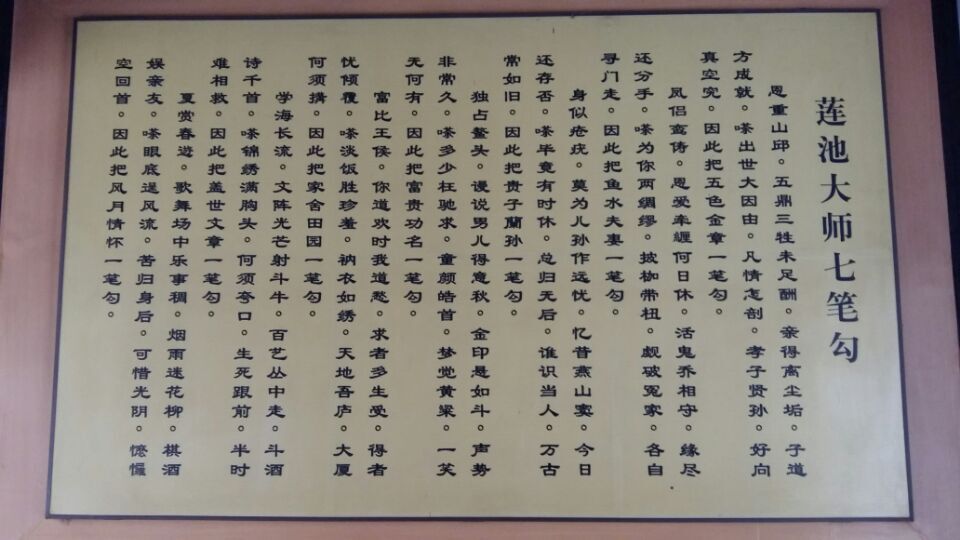 莲池大师七笔勾
恩重山邱。五鼎三牲未足酬。亲得离尘垢。子道
方成就。嗏出世大因由。凡情怎剖。孝子贤孙。好向
真空究。因此把五色金章一笔勾。
凤侣鸾俦。恩爱牵缠何日休。活鬼乔相守。缘尽
还分手。嗏为你两绸缪。披枷带杻。觑破冤家。各自
寻门走。因此把鱼水夫妻一笔勾。
身似疮疣。莫为儿孙作远忧。忆昔燕山窦。今日
还存否。嗏毕竟有时休。总归无后。谁识当人。万古
常如旧。因此把贵子蘭孙一笔勾。
独占鳌头。谩说男儿得意秋。金印悬如斗。声势
非常久。嗏多少枉驰求。童颜皓首。梦觉黄粱。一笑
无何有。因此把富贵功名一笔勾。
富比王侯。你道欢时我道愁。求者多生受。得者
忧倾覆。嗏淡饭胜珍羞。衲衣如绣。天地吾庐。大厦
何须搆。因此把家舍田园一笔勾。
学海长流。文阵光芒射斗牛。百艺丛中走。斗酒
诗千首。嗏锦绣满胸头。何须夸口。生死跟前。半时
难相救。因此把盖世文章一笔勾。
夏赏春遊。歌舞场中乐事稠。烟雨迷花柳。棋酒
娱亲友。嗏眼底逞风流。苦归身后。可惜光阴。懡㦬
空回首。因此把风月情怀一笔勾。